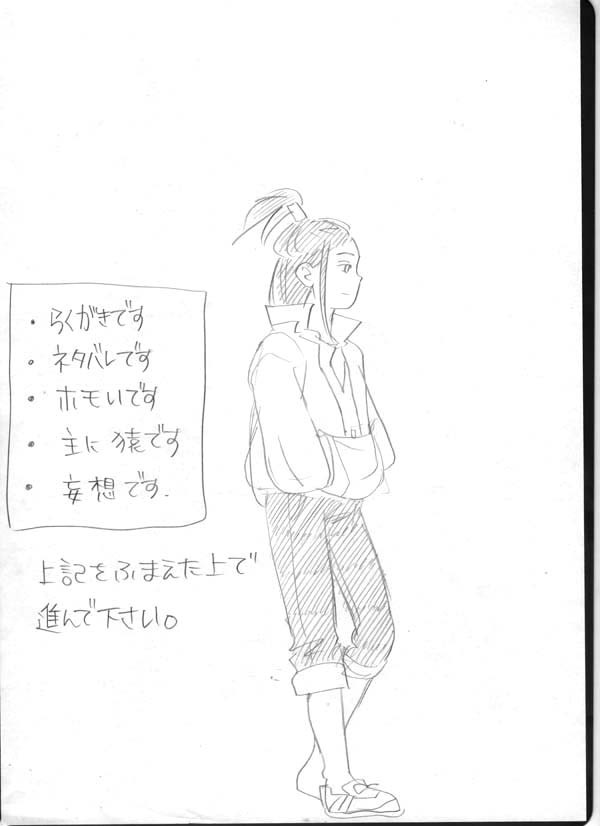 ・らくがきです
・ネタバレです
・ホモいです
・主に猿です
・妄想です.
上記をふまえた上で
進んで下さい。